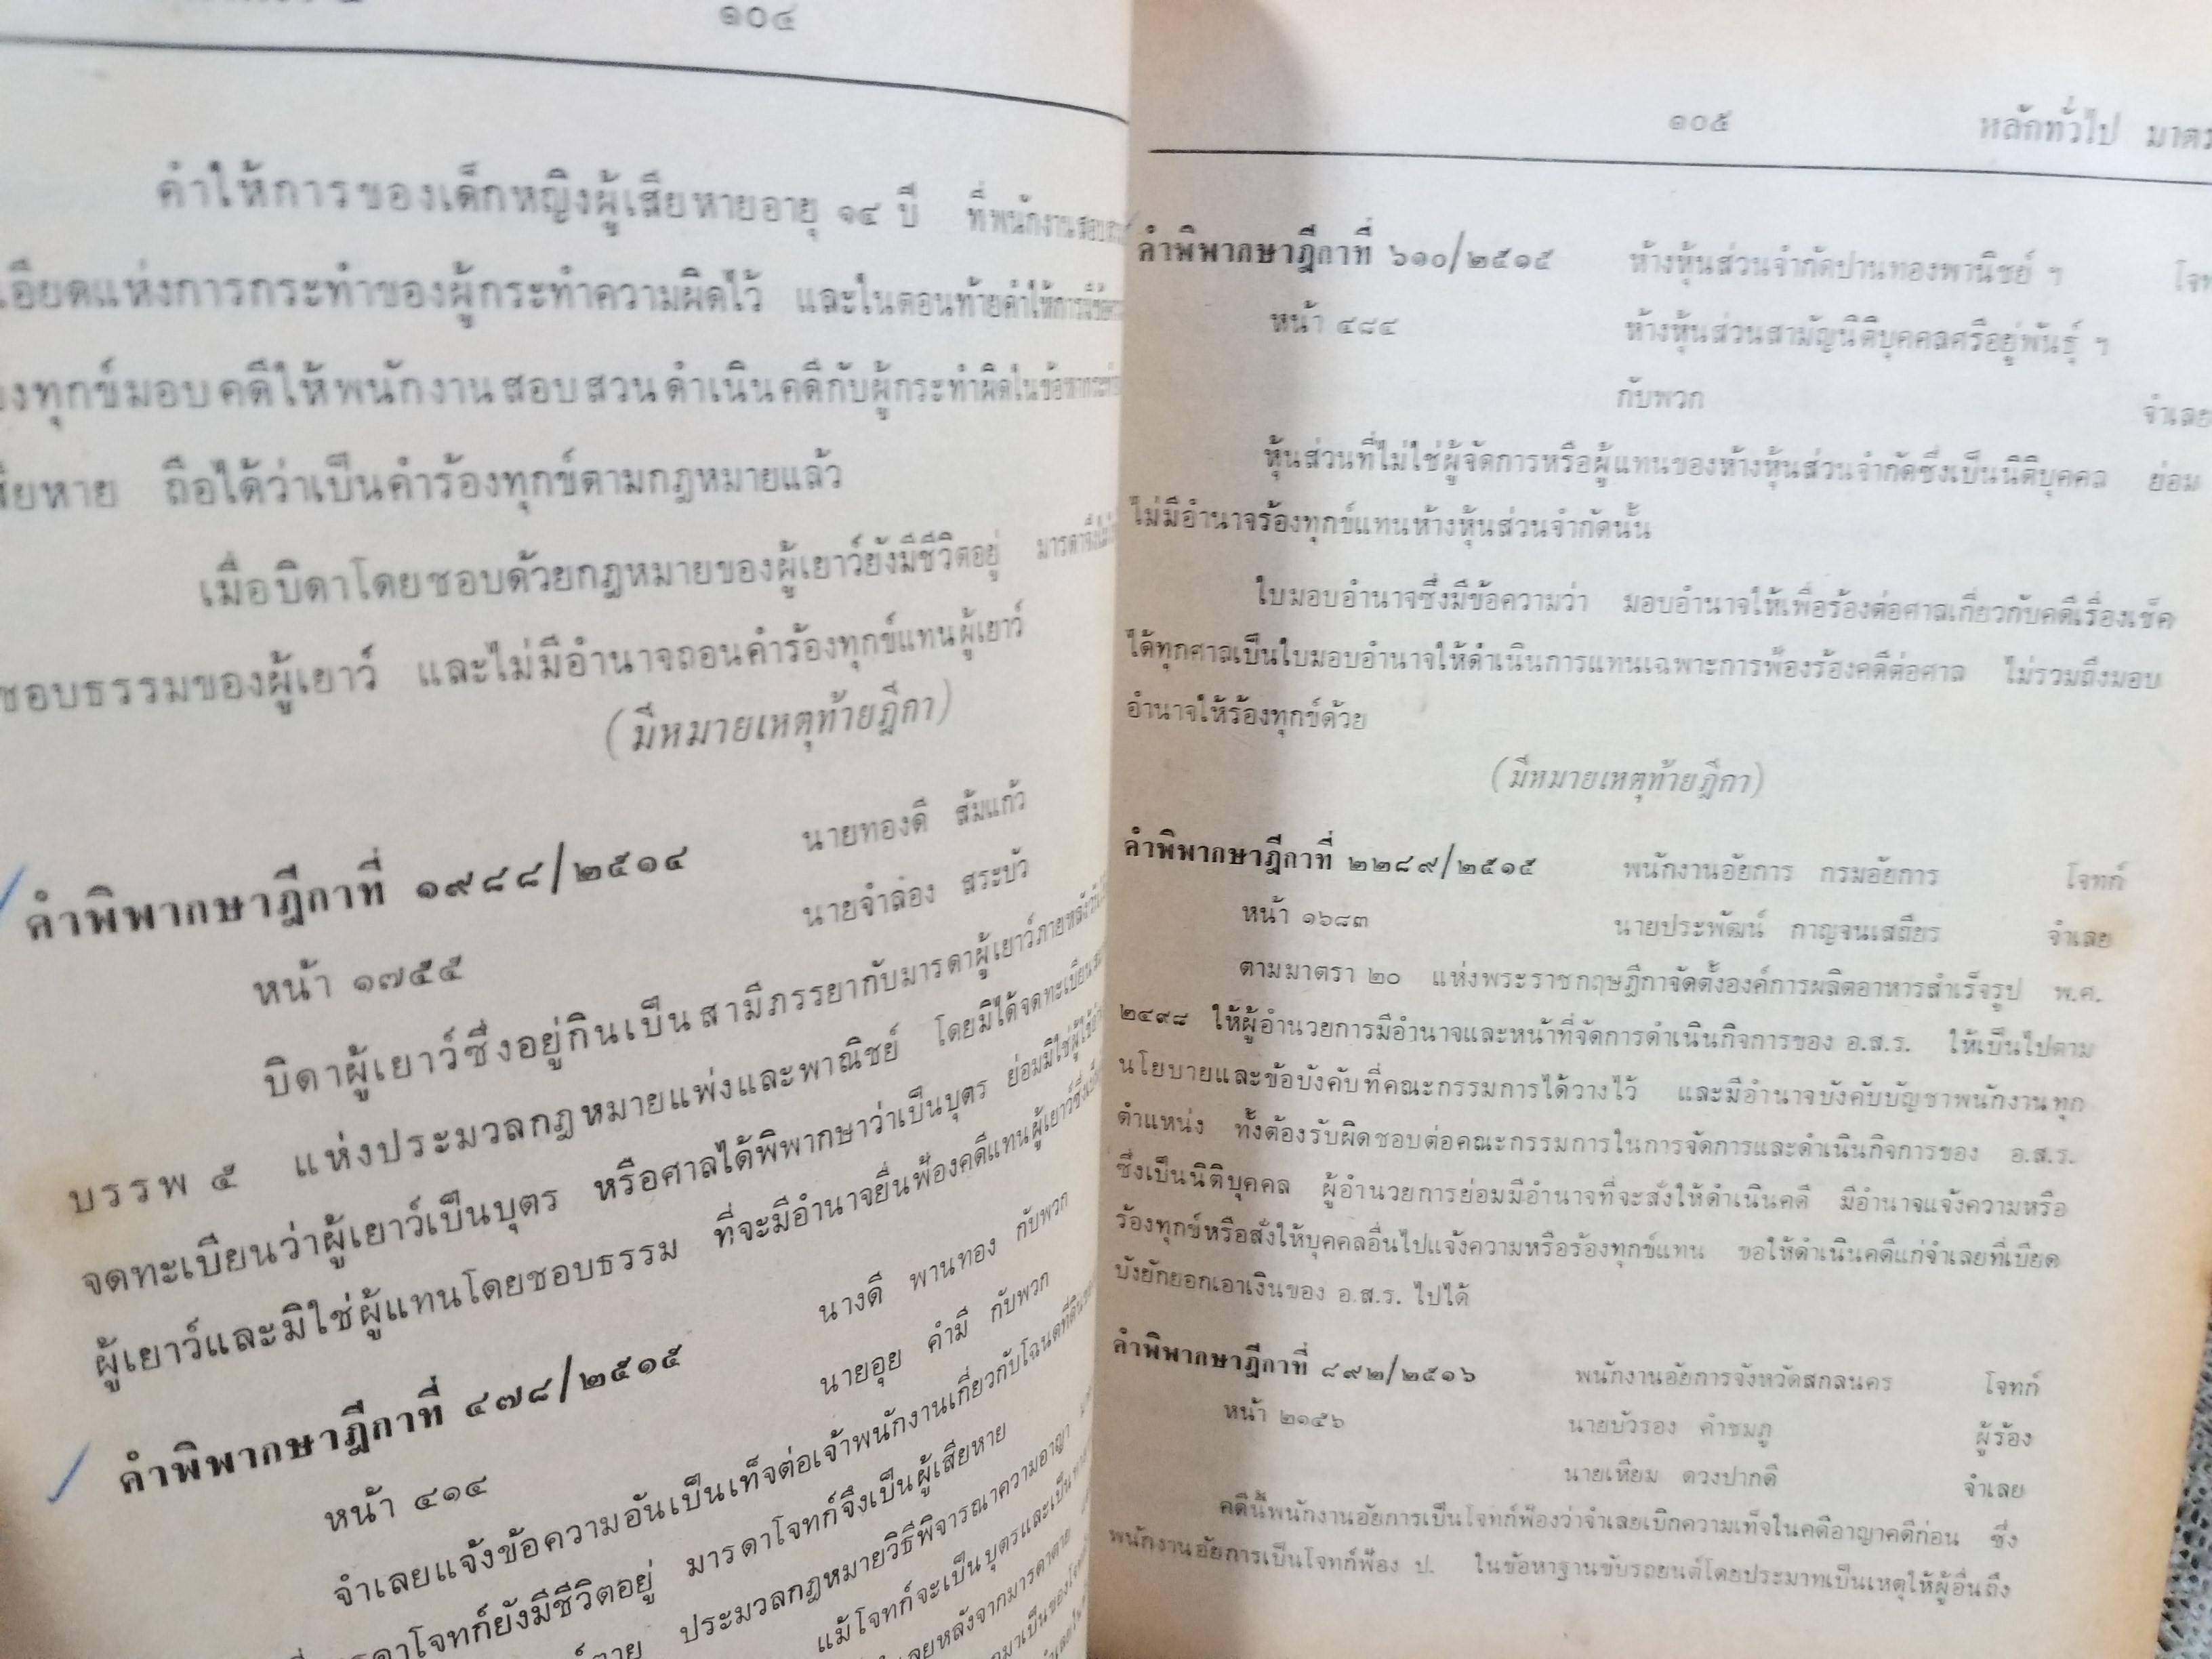 ๑๐๔
คำให้การของเด็กหญิงผู้เสียหายอายุ ๑๔ ปี ที่พนักงานสอบ
เอียดแห่งการกระทำของผู้กระทำความผิดไว้ และในตอนท้ายคำให้การมีข้อ
องทุกข์มอบคดีให้พนักงานสอบสวนดำเนินคดีกับผู้กระทำผิดในข้อหากระทำ
สียหาย ถือได้ว่าเป็นคำร้องทุกข์ตามกฎหมายแล้ว
เมื่อบิดาโดยชอบด้วยกฎหมายของผู้เยาว์ยังมีชีวิตอยู่ มารดาจึงไม่
ชอบธรรมของผู้เยาว์ และไม่มีอำนาจถอนคำร้องทุกข์แทนผู้เยาว์
(มีหมายเหตุท้ายฎีกา)
คำพิพากษาฎีกาที่ ๑๙๘๘/๒๕๑๔ นายทองดี ส้มแก้ว
หน้า ๑๗๕๕ นายจำลอง สระบัว
บิดาผู้เยาว์ซึ่งอยู่กินเป็นสามีภรรยากับมารดาผู้เยาว์ภายหลัง
บรรพ ๕ แห่งประมวลกฎหมายแพ่งและพาณิชย์ โดยมิได้จดทะเบียน
จดทะเบียนว่าผู้เยาว์เป็นบุตร หรือศาลได้พิพากษาว่าเป็นบุตร ย่อมมิใช่ผู้ใช้
ผู้เยาว์และมิใช่ผู้แทนโดยชอบธรรม ที่จะมีอำนาจยื่นฟ้องคดีแทนผู้เยาว์ซึ่ง
คำพิพากษาฎีกาที่ ๔๗๘/๒๕๑๕ นางดี พานทอง กับพวก
หน้า ๔๑๔ นายอุย คำมี กับพวก
จำเลยแจ้งข้อความอันเป็นเท็จต่อเจ้าพนักงานเกี่ยวกับโฉนดที่ดิน
ดาโจทก์ยังมีชีวิตอยู่ มารดาโจทก์จึงเป็นผู้เสียหาย
ประมวลกฎหมายวิธีพิจารณาความอาญา
แม้โจทก์จะเป็นบุตรและเป็น
เลยหลังจากมารดาตาย
๑๐๕ หลักทั่วไป มาตร
คำพิพากษาฎีกาที่ ๖๑๐/๒๕๑๕ ห้างหุ้นส่วนจำกัดปานทองพานิชย์ ฯ โจท
หน้า ๔๘๔ ห้างหุ้นส่วนสามัญนิติบุคคลศรีอยู่พันธุ์ ฯ
กับพวก จำเลย
หุ้นส่วนที่ไม่ใช่ผู้จัดการหรือผู้แทนของห้างหุ้นส่วนจำกัดซึ่งเป็นนิติบุคคล ย่อม
ไม่มีอำนาจร้องทุกข์แทนห้างหุ้นส่วนจำกัดนั้น
ใบมอบอำนาจซึ่งมีข้อความว่า มอบอำนาจให้เพื่อร้องต่อศาลเกี่ยวกับคดีเรื่องเช็ค
ได้ทุกศาลเป็นใบมอบอำนาจให้ดำเนินการแทนเฉพาะการฟ้องร้องคดีต่อศาล ไม่รวมถึงมอบ
อำนาจให้ร้องทุกข์ด้วย
(มีหมายเหตุท้ายฎีกา)
คำพิพากษาฎีกาที่ ๒๒๘๙/๒๕๑๕ พนักงานอัยการ กรมอัยการ โจทก์
หน้า ๑๖๘๓ นายประพัฒน์ กาญจนเสถียร จำเลย
ตามมาตรา ๒๐ แห่งพระราชกฤษฎีกาจัดตั้งองค์การผลิตอาหารสำเร็จรูป พ.ศ.
๒๔๙๘ ให้ผู้อำนวยการมีอำนาจและหน้าที่จัดการดำเนินกิจการของ อ.ส.ร. ให้เป็นไปตาม
นโยบายและข้อบังคับที่คณะกรรมการได้วางไว้ และมีอำนาจบังคับบัญชาพนักงานทุก
ตำแหน่ง ทั้งต้องรับผิดชอบต่อคณะกรรมการในการจัดการและดำเนินกิจการของ อ.ส.ร.
ซึ่งเป็นนิติบุคคล ผู้อำนวยการย่อมมีอำนาจที่จะสั่งให้ดำเนินคดี มีอำนาจแจ้งความหรือ
ร้องทุกข์หรือสั่งให้บุคคลอื่นไปแจ้งความหรือร้องทุกข์แทน ขอให้ดำเนินคดีแก่จำเลยที่เบียด
บังยักยอกเอาเงินของ อ.ส.ร. ไปได้
คำพิพากษาฎีกาที่ ๘๙๒/๒๕๑๖ พนักงานอัยการจังหวัดสกลนคร โจทก์
หน้า ๒๑๕๖ นายบัวรอง คำชมภู ผู้ร้อง
นายเหียม ดวงปากดี จำเลย
คดีนี้พนักงานอัยการเป็นโจทก์ฟ้องว่าจำเลยเบิกความเท็จในคดีอาญาคดีก่อน ซึ่ง
พนักงานอัยการเป็นโจทก์ฟ้อง ป. ในข้อหาฐานขับรถยนต์โดยประมาทเป็นเหตุให้ผู้อื่นถึง